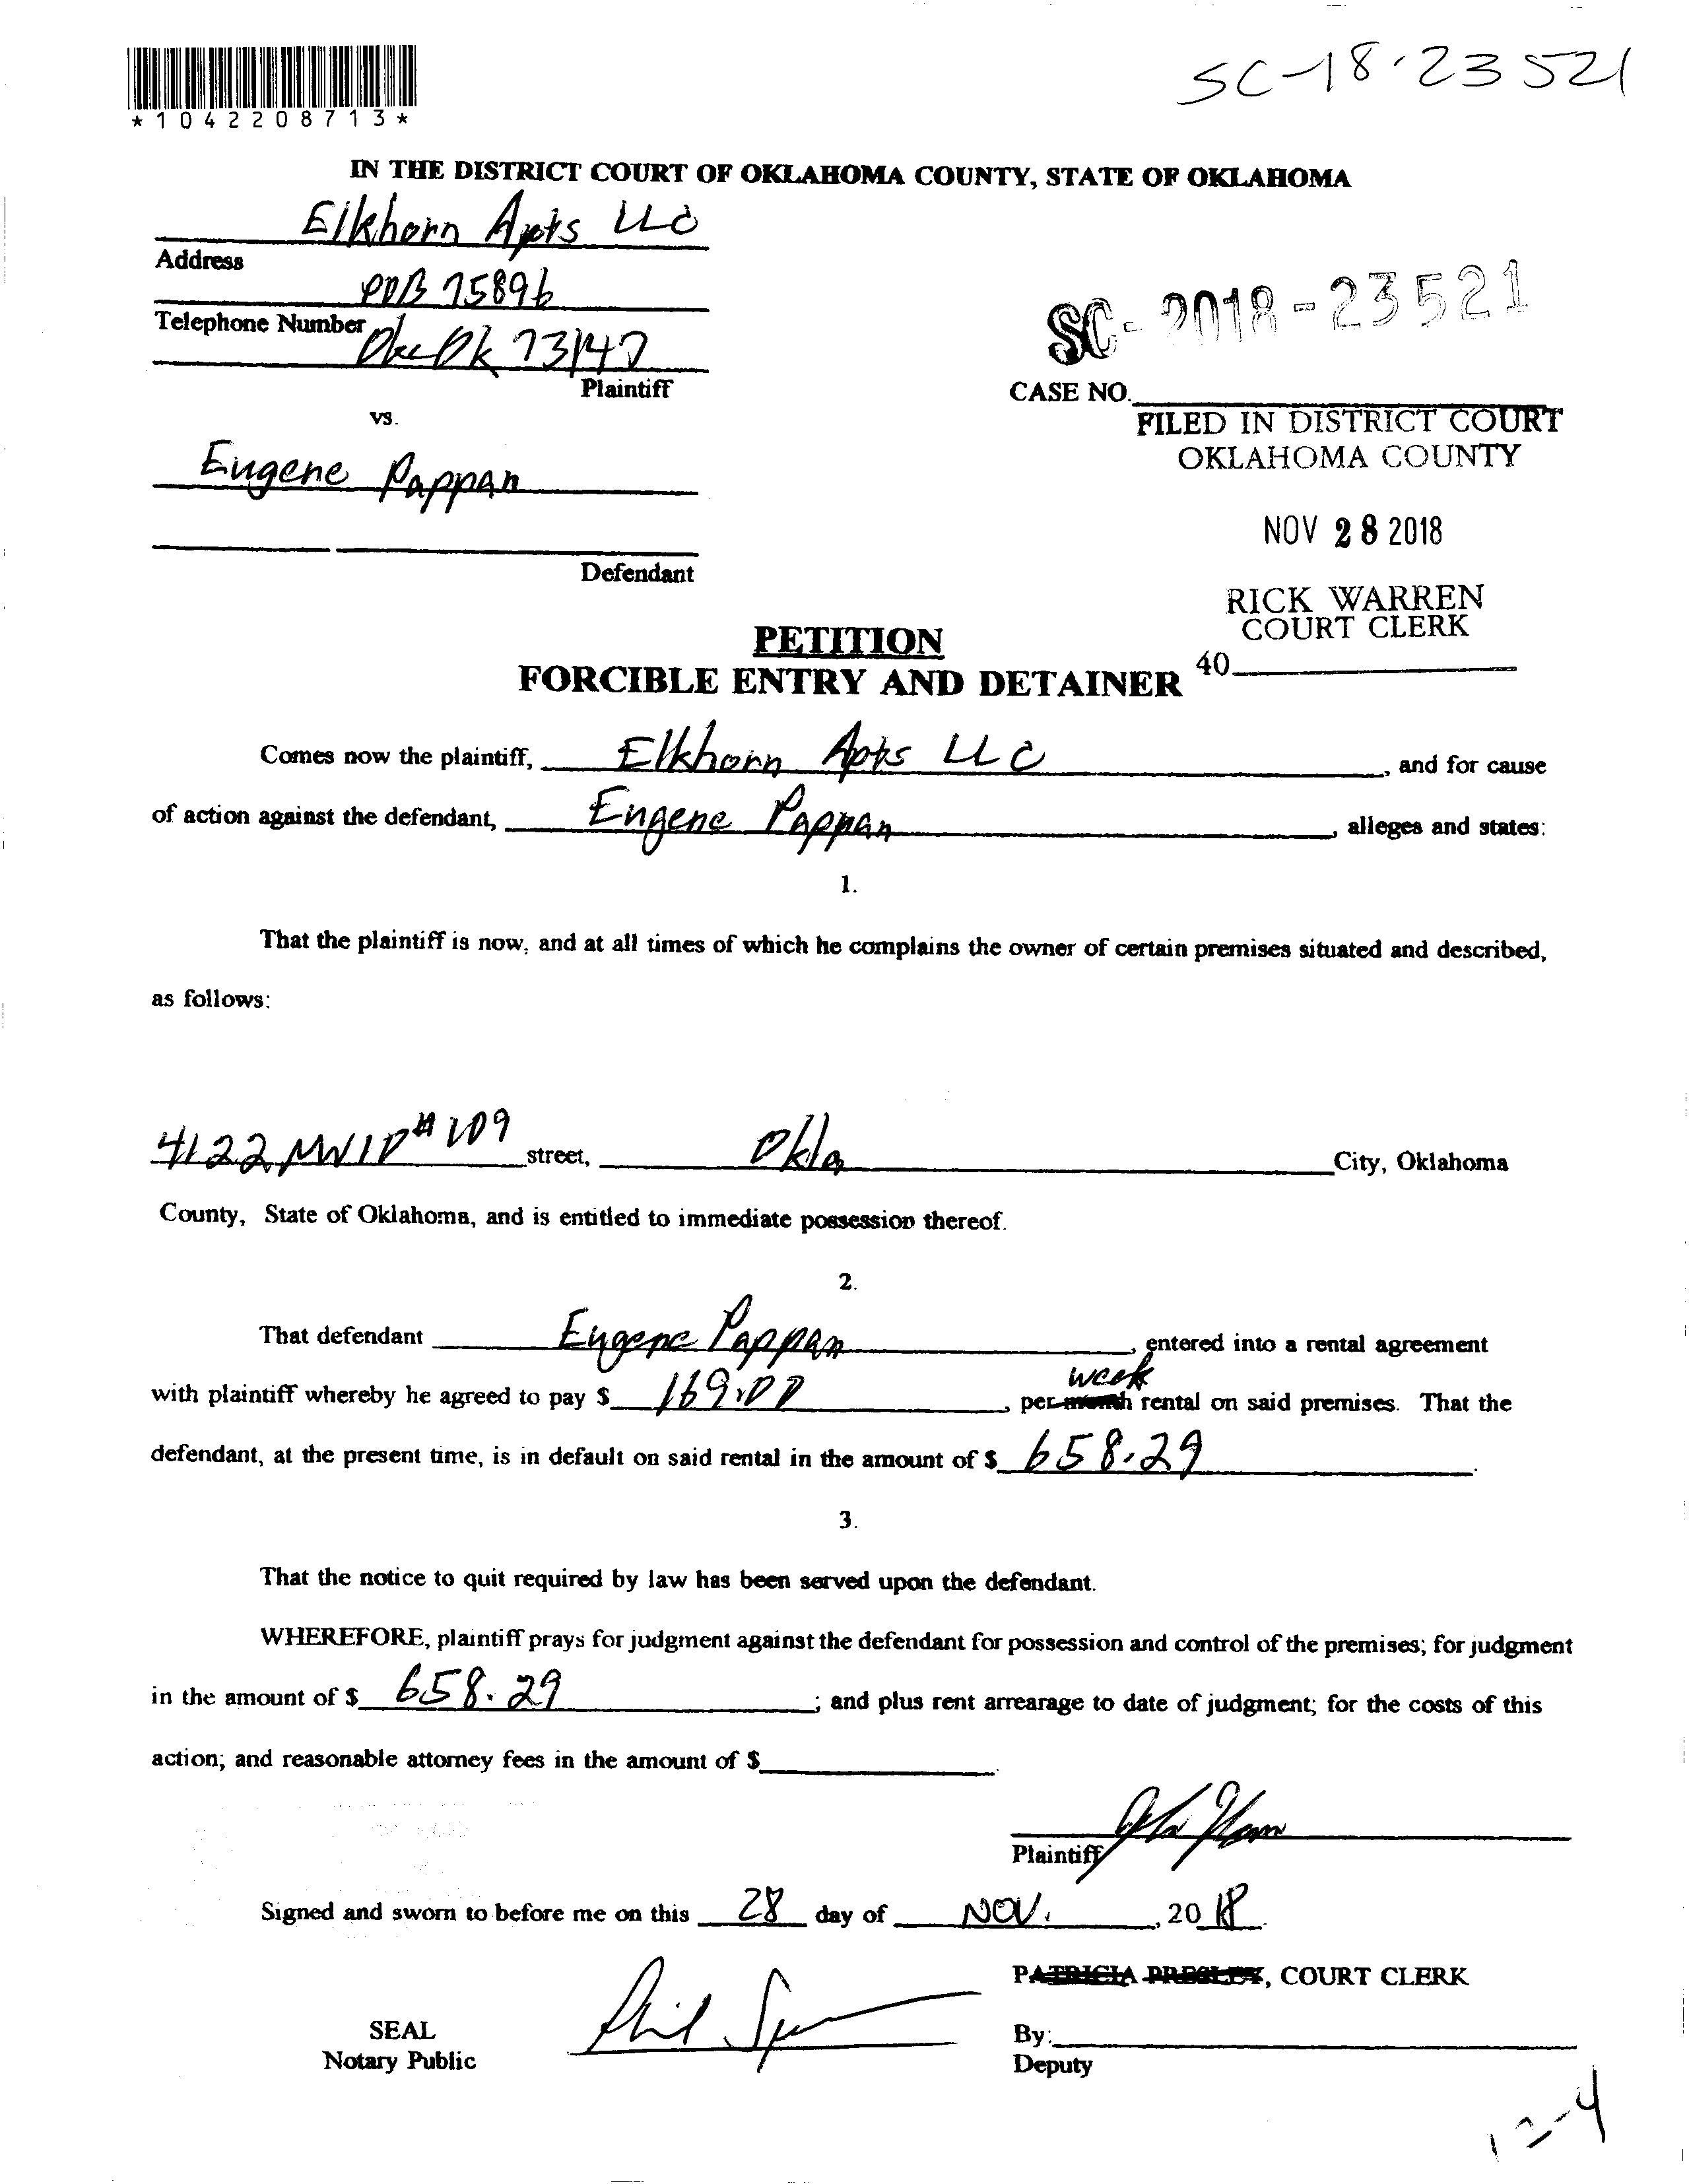 *1042208713*
SC-18-23521
IN THE DISTRICT COURT OF OKLAHOMA COUNTY, STATE OF OKLAHOMA
Elkhorn Apts LLC
Address
POB 75896
Telephone Number
Okc Ok 73147
Plaintiff
vs.
Eugene Pappan
Defendant
SC-2018-23521
CASE NO.
FILED IN DISTRICT COURT
OKLAHOMA COUNTY
NOV 28 2018
RICK WARREN
COURT CLERK
40
PETITION
FORCIBLE ENTRY AND DETAINER
Comes now the plaintiff, Elkhorn Apts LLC, and for cause
of action against the defendant, Eugene Pappan, alleges and states:
1.
That the plaintiff is now, and at all times of which he complains the owner of certain premises situated and described,
as follows:
4122 NW10 #109 street, Okla City, Oklahoma
County, State of Oklahoma, and is entitled to immediate possession thereof.
2.
That defendant Eugene Pappan, entered into a rental agreement
week
with plaintiff whereby he agreed to pay $ 169.00, per month rental on said premises. That the
defendant, at the present time, is in default on said rental in the amount of $ 658.29.
3.
That the notice to quit required by law has been served upon the defendant.
WHEREFORE, plaintiff prays for judgment against the defendant for possession and control of the premises; for judgment
in the amount of $ 658.29; and plus rent arrearage to date of judgment; for the costs of this
action; and reasonable attorney fees in the amount of $
Plaintiff
Signed and sworn to before me on this 28 day of NOV., 2018.
PATRICIA PRESLEY, COURT CLERK
SEAL
Notary Public
Phil
By:
Deputy
12-4